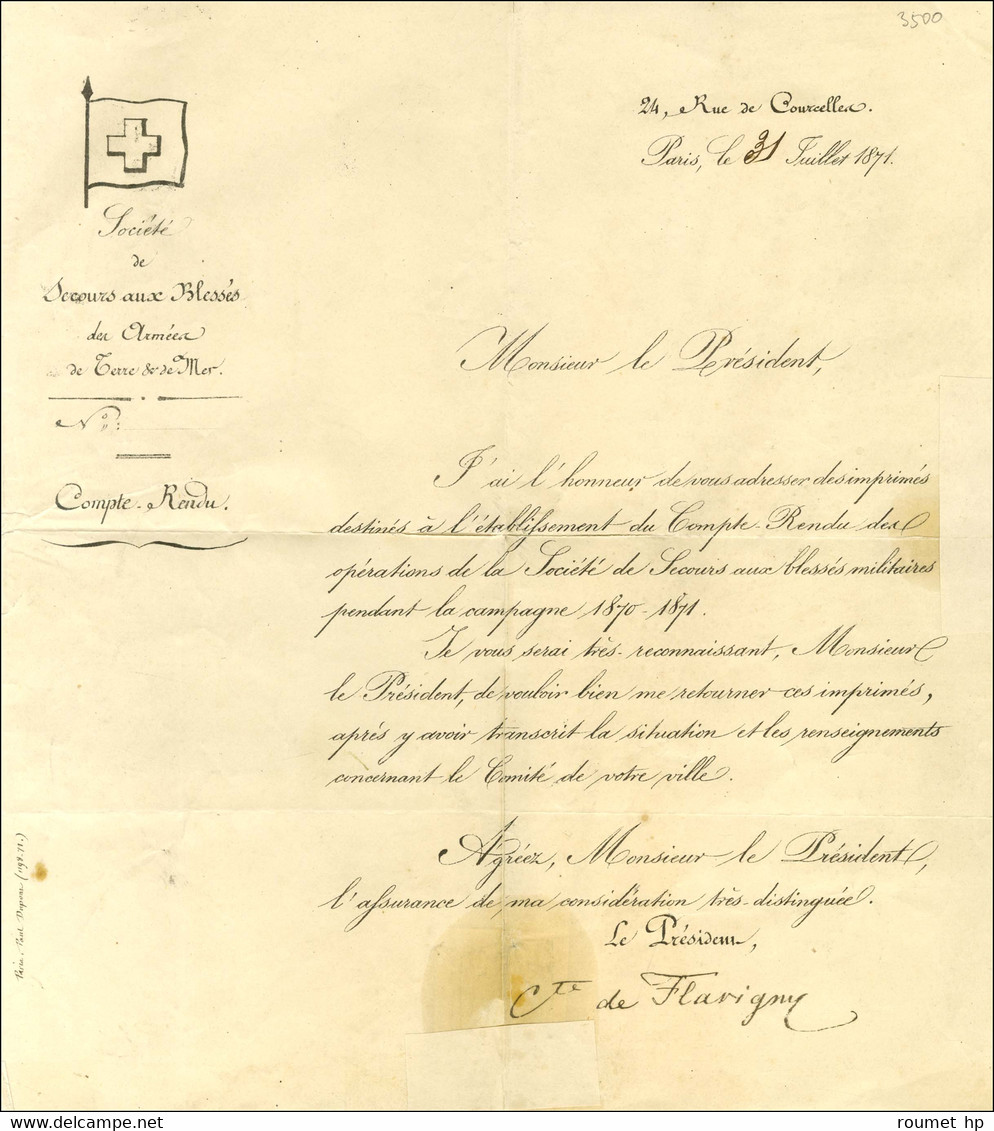 3500
24, Rue de Courcelles.
Paris, le 31 Juillet 1871.
Société
de
Secours aux Blessés
des Armées
de Terre & de Mer.
N°:
Compte-Rendu.
Monsieur le Président,
J'ai l'honneur de vous adresser des imprimés
destinés à l'établissement du Compte-Rendu des
opérations de la Société de Secours aux blessés militaires
pendant la campagne 1870-1871.
Je vous serai très-reconnaissant, Monsieur
le Président, de vouloir bien me retourner ces imprimés,
après y avoir transcrit la situation et les renseignements
concernant le Comité de votre ville.
Agréez, Monsieur le Président,
l'assurance de ma considération très-distinguée.
Le Président,
Cte de Flavigny
Paris. Paul Dupont
roumet hp